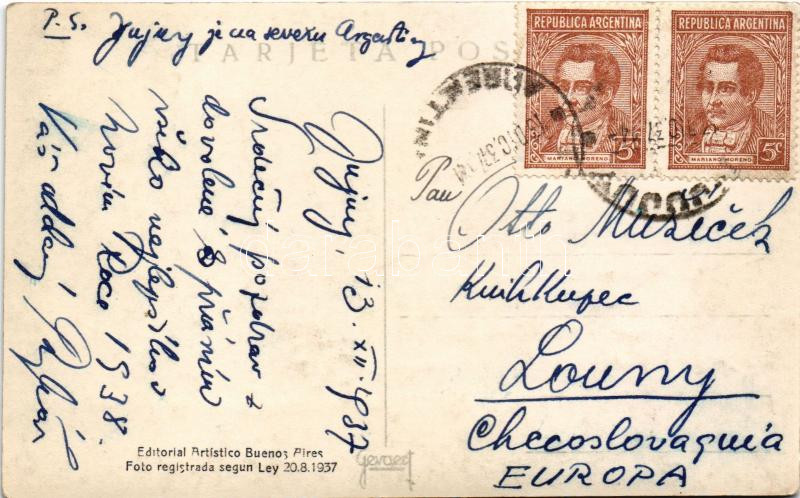 P.S. Jujuy je na severu Argentiny
TARJETA POS
REPUBLICA ARGENTINA
REPUBLICA ARGENTINA
MARIANO MORENO
5c
MARIANO MORENO
5c
Jujuy, 13. XII. 1937
Srdečný pozdrav z
dovolené s přáním
všeho nejlepšího v
novém roce 1938.
Váš oddaný
Pan
Otto Mazeček
Knihkupec
Louny
Checoslovaquia
EUROPA
Editorial Artístico Buenos Aires
Foto registrada segun Ley 20.8.1937
Gevaert
darabanth